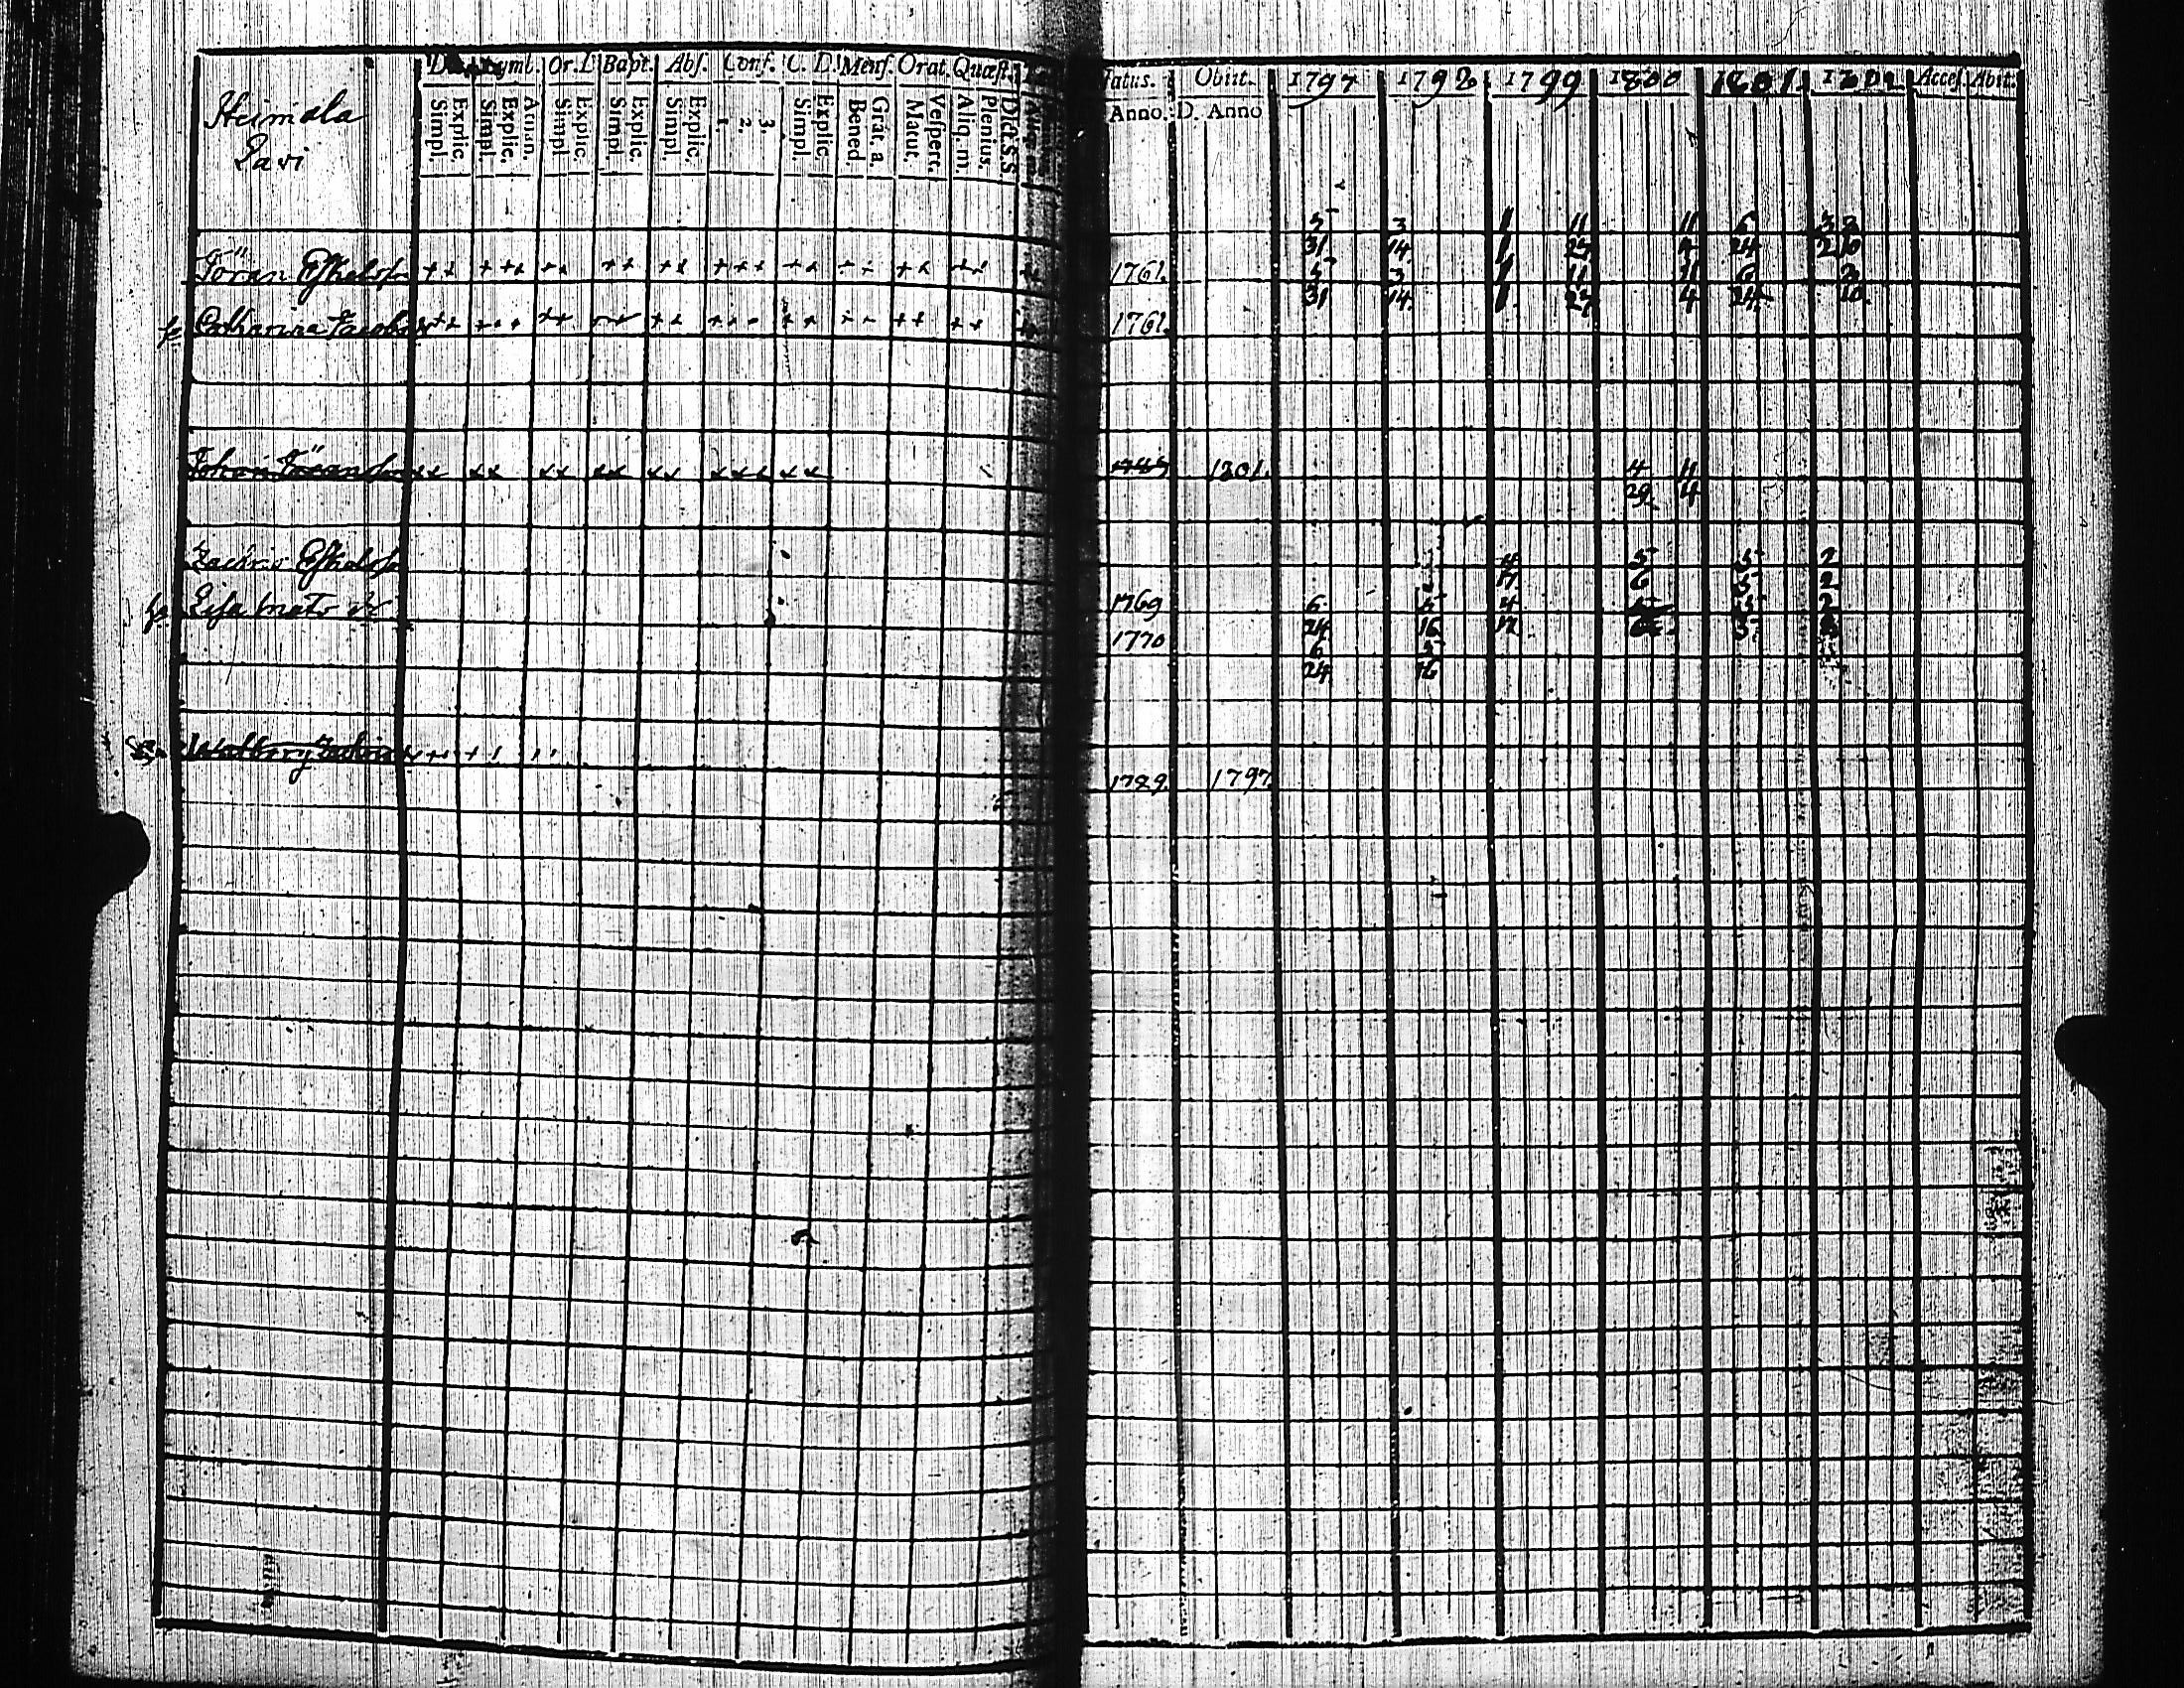 Heimola
Lari
Symb. Or. D Bapt. Abs. Conf. C. D. Mens. Orat. Quæst.
Simpl. Explic. Simpl. Explic. Simpl. Explic. Simpl. Explic. Simpl. Explic. 1. 2. 3. Simpl. Explic. Bened. Grat. a. Matut. Vespert. Aliq. m. Plenius. Dict. s. s.
Natus. Obiit. 1797 1798 1799 1800 1801. 1802 Acces. Abit.
Anno. D. Anno
5 3 1 11 11 6 3 2
31 14 1 27 4 24 2 10
Jöran Eskelss ++ +++ ++ ++ ++ +++ ++ ++ ++ ++
1761. 5 3 1 11 11 6 2
31 14. 1 27 4 24 10.
h. Catharina Jacobsd ++ +++ ++ ++ +++ ++ ++ ++ ++
1761.
Johan Jöransson ++ ++ ++ ++ ++ +++ ++
1801. 4 11
29 4
Zachris Eskelss
4 5 5 2
17 6 5 2
h. Lisa Mats dr
1769 6 5 4 5 5 2
24 16 17 6 5 2
1770 6 5
24 16
Walborg Zachrisd ++ + +
1789. 1797.